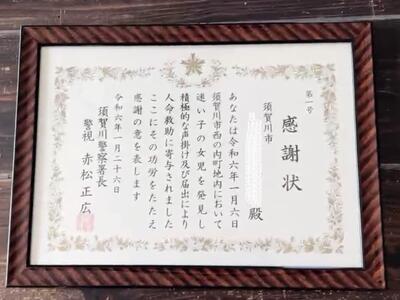 第一号
感謝状
須賀川市
殿
あなたは令和六年一月六日
須賀川市西の内町地内において
迷い子の女児を発見し
積極的な声掛け及び届出により
人命救助に寄与されました
ここにその功労をたたえ
感謝の意を表します
令和六年一月二十六日
須賀川警察署長
警視 赤松正広